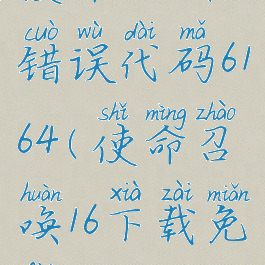 cuò wù dài mǎ
错误代码61
shǐ mìng zhào
64(使命召
huàn xià zài miǎn
唤16下载免